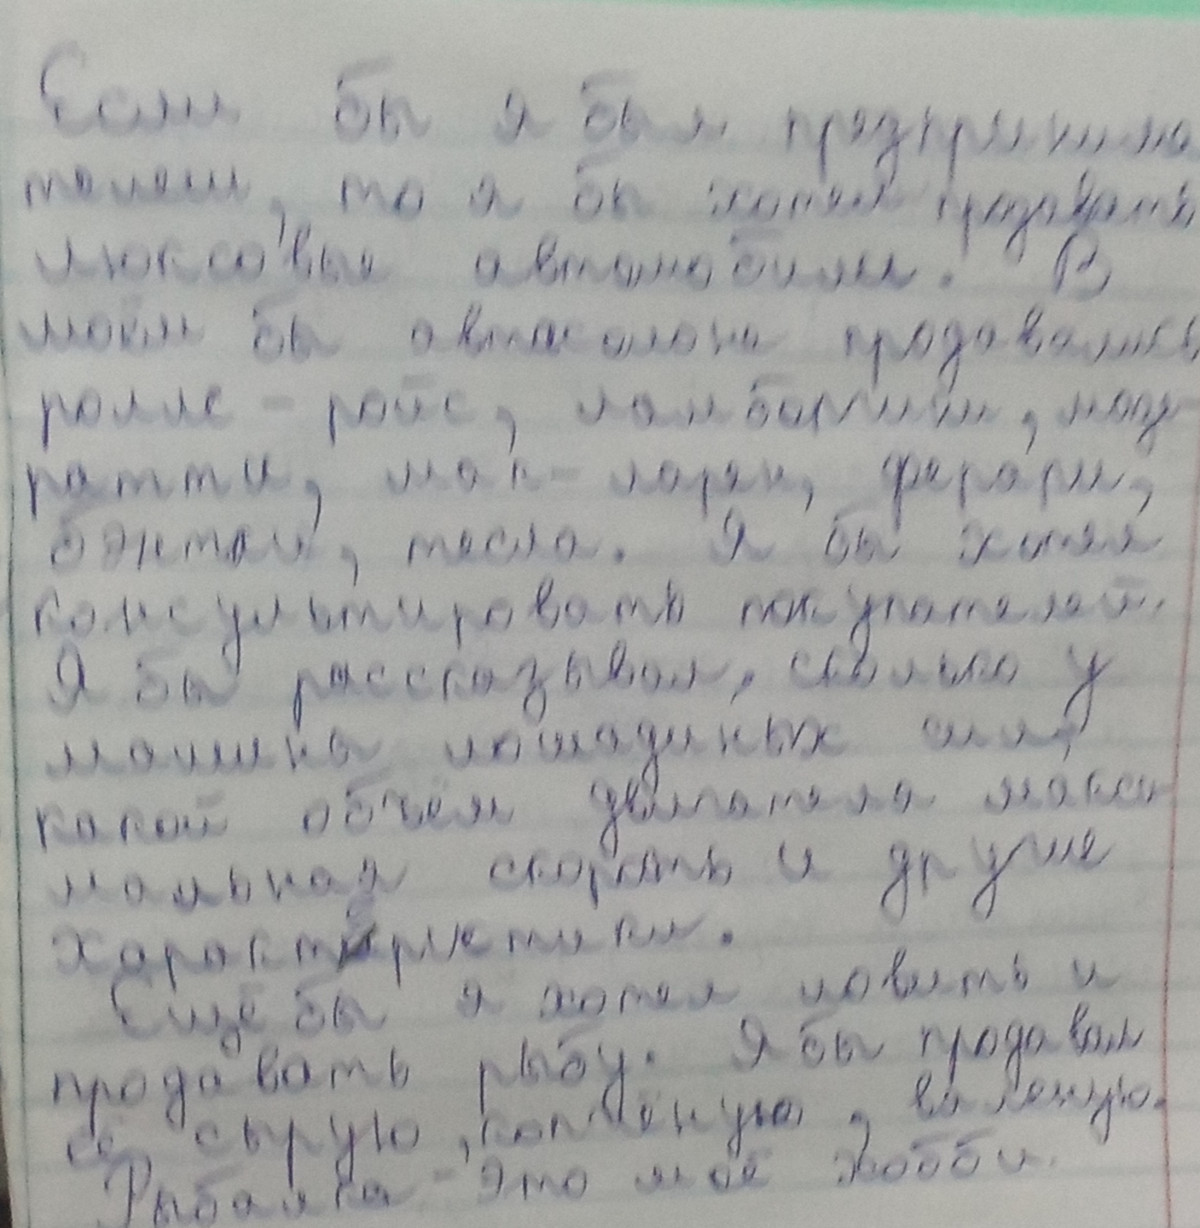 Если бы я был предпринима
телем, то я бы хотел продавать
люксовые автомобили. В
моём бы автосалоне продавались
роллс-ройс, ламборгини, мазе-
ратти, мак-ларен, ферари,
бэнтли, тесла. Я бы хотел
консультировать покупателей.
Я бы рассказывал, сколько у
машины лошадиных сил,
какой объём двигателя макси
мальная скорость и другие
характиристики.
Ещё бы я хотел ловить и
продавать рыбу. Я бы продавал
её сырую, копчёную, валеную.
Рыбалка - это моё хобби.